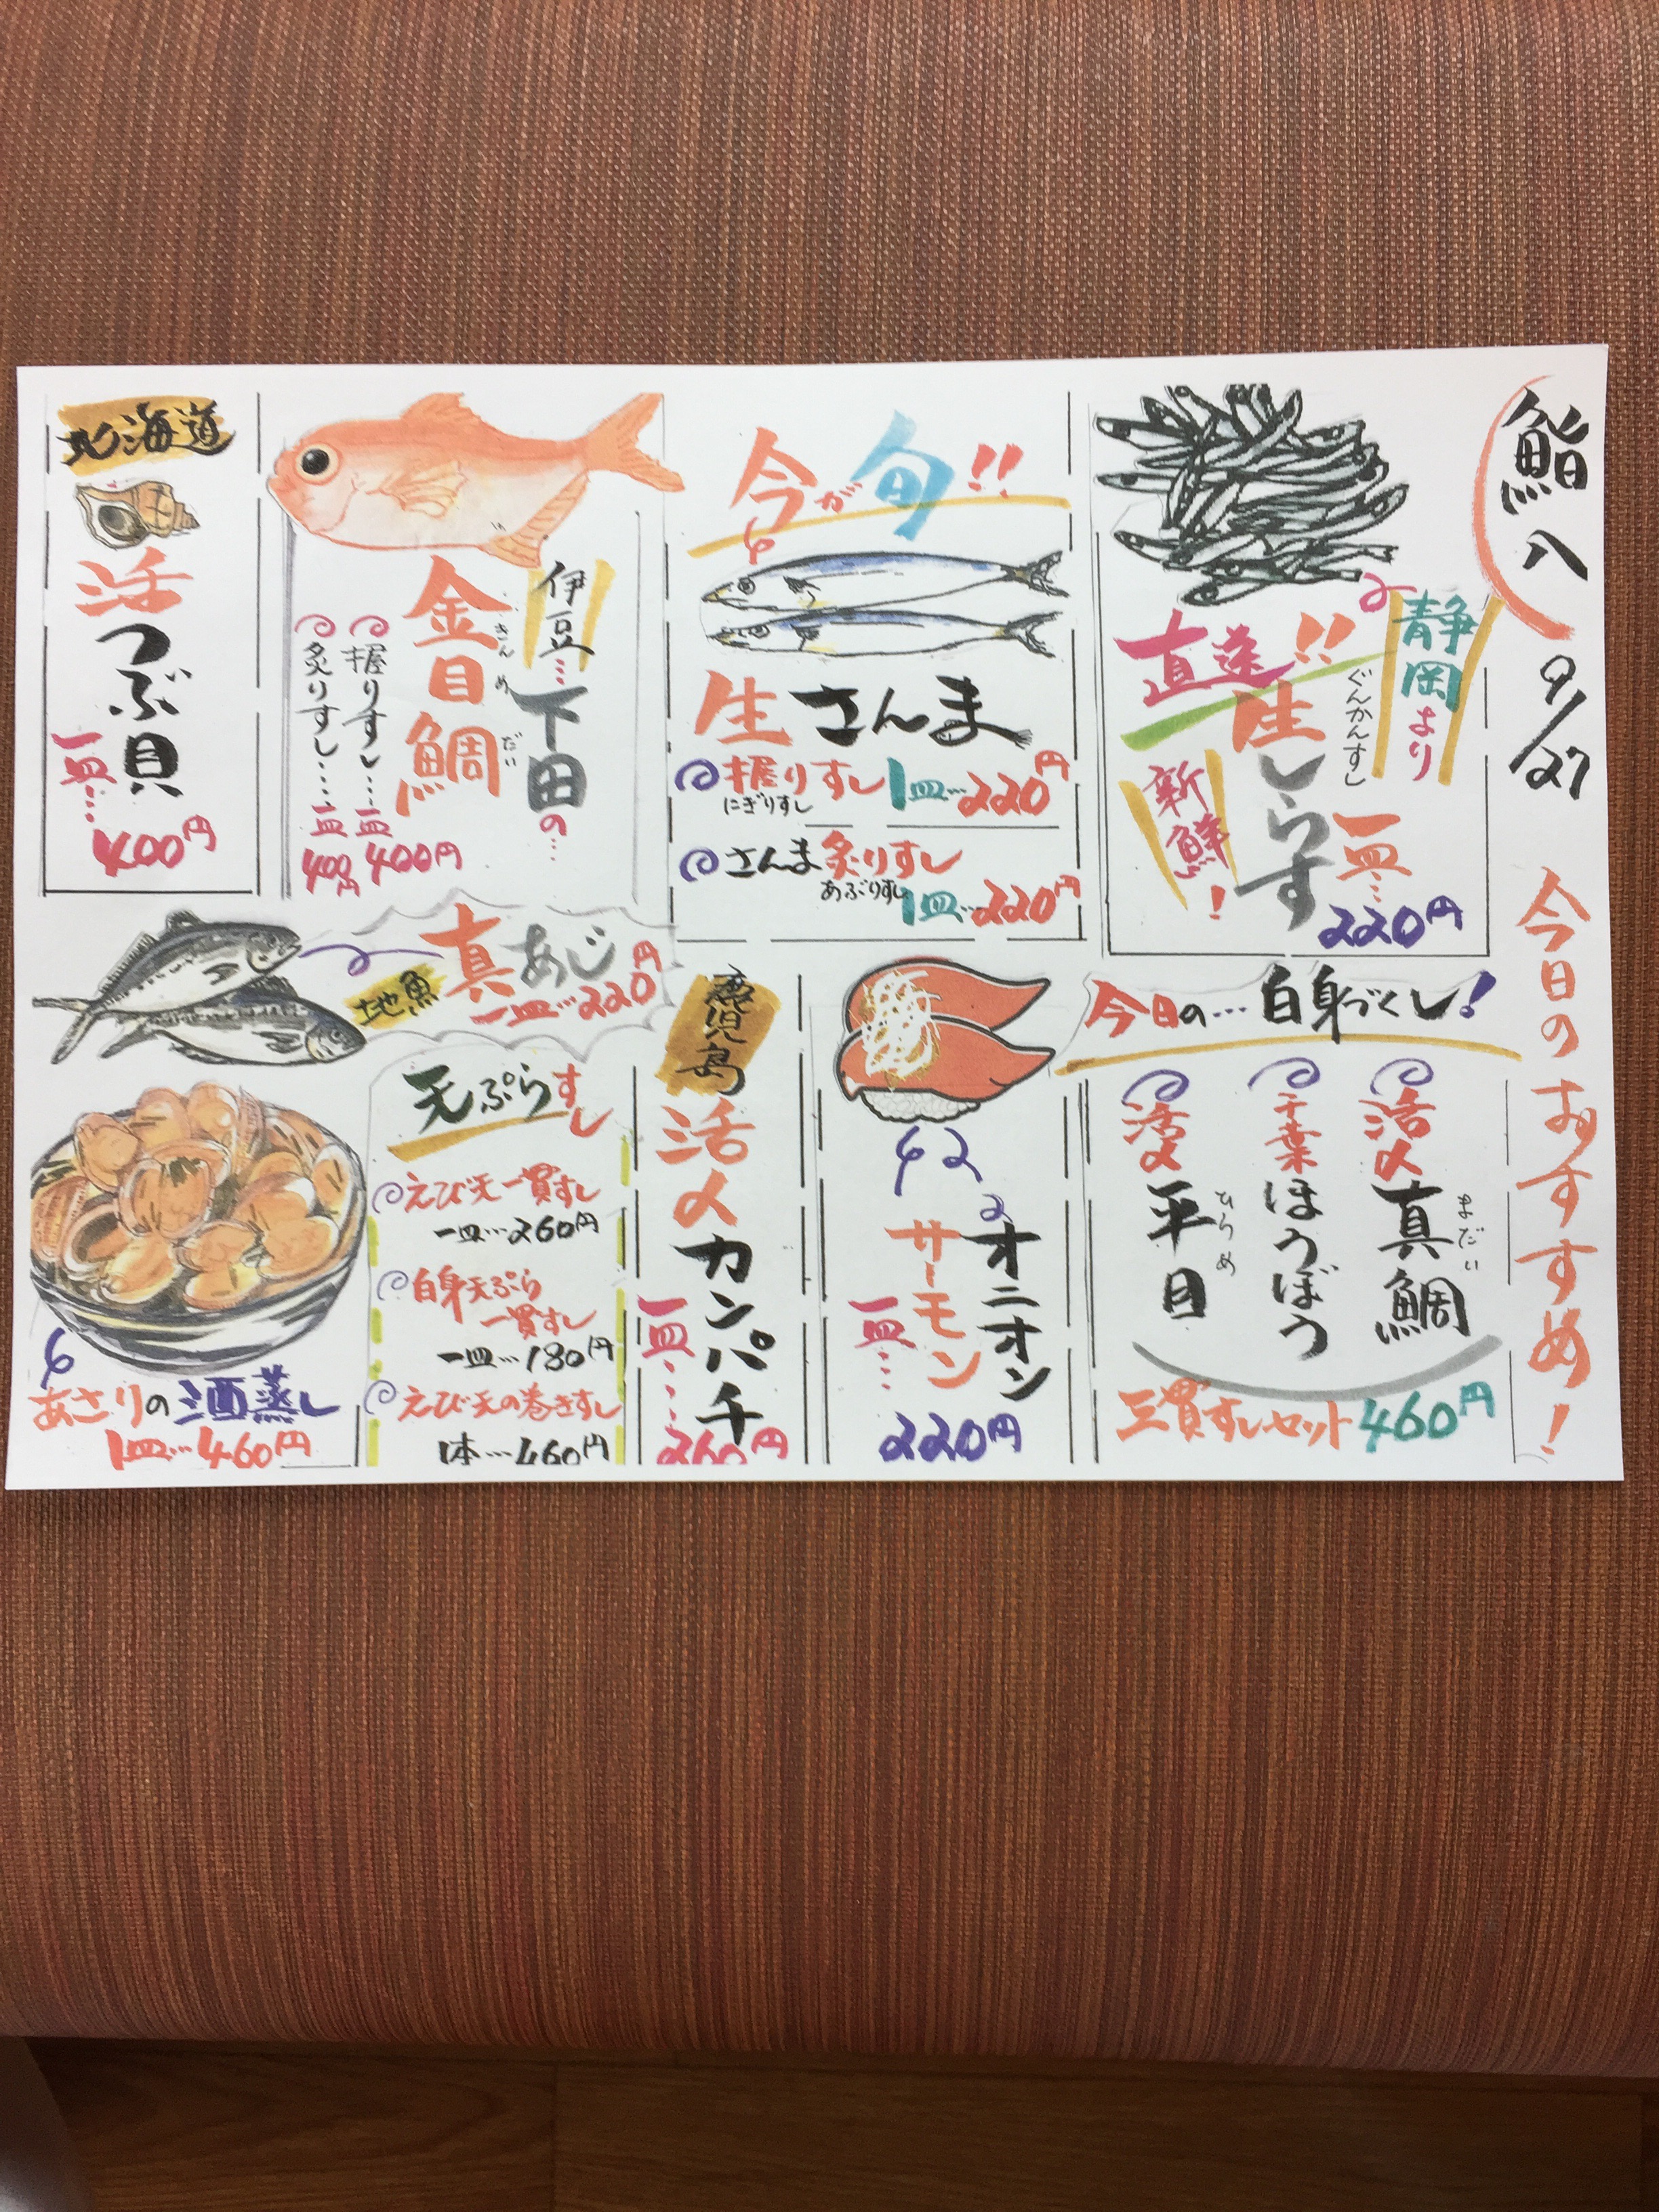 鮨八 9/27
今日のおすすめ!
静岡より
直送!!
ぐんかんすし
生しらす
新鮮!
一皿…220円
今が旬!!
生さんま
握りすし 1皿…220円
にぎりすし
さんま炙りすし
あぶりすし
1皿…220円
伊豆…下田の…
金目鯛
きんめだい
握りすし…一皿400円
炙りすし…一皿400円
北海道
活つぶ貝
一皿…400円
今日の…白身づくし!
活〆真鯛
まだい
千葉ほうぼう
活〆平目
ひらめ
三貫すしセット460円
オニオン
サーモン
一皿…220円
鹿児島
活〆カンパチ
一皿…260円
地魚
真あじ
一皿…220円
天ぷらすし
えび天一貫すし
一皿…260円
白身天ぷら
一貫すし
一皿…180円
えび天の巻きすし
1本…460円
あさりの酒蒸し
1皿…460円